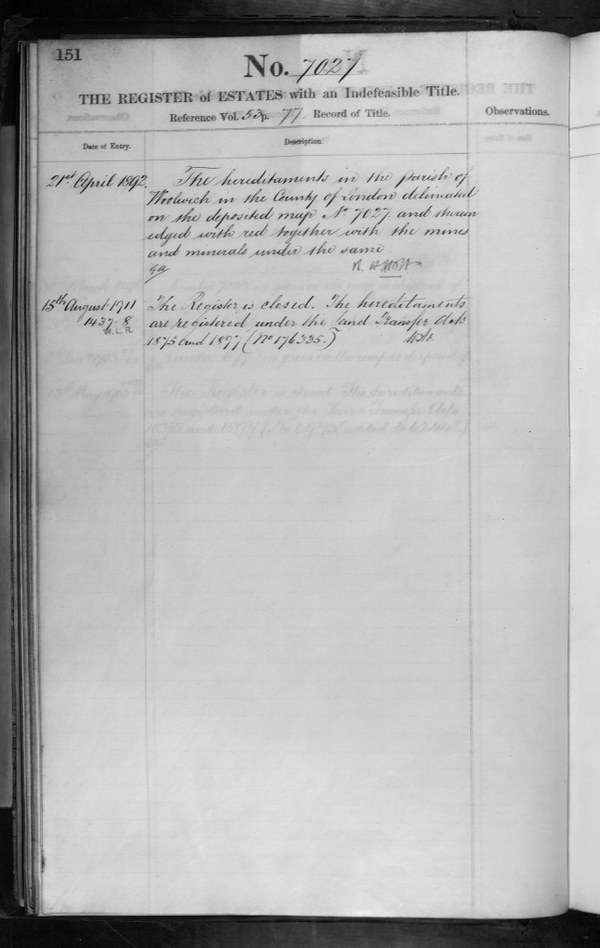 151
No. 7027
THE REGISTER of ESTATES with an Indefeasible Title.
Reference Vol. 53 p. 77 Record of Title.
Observations.
Date of Entry.
Description.
21st April 1892.
The hereditaments in the parish of
Woolwich in the County of London delineated
on the deposited map No. 7027 and thereon
edged with red together with the mines
and minerals under the same
15th August 1911
1437.8
H.L.R.
The Register is closed. The hereditaments
are registered under the Land Transfer Acts
1875 and 1897 (No 176335.)